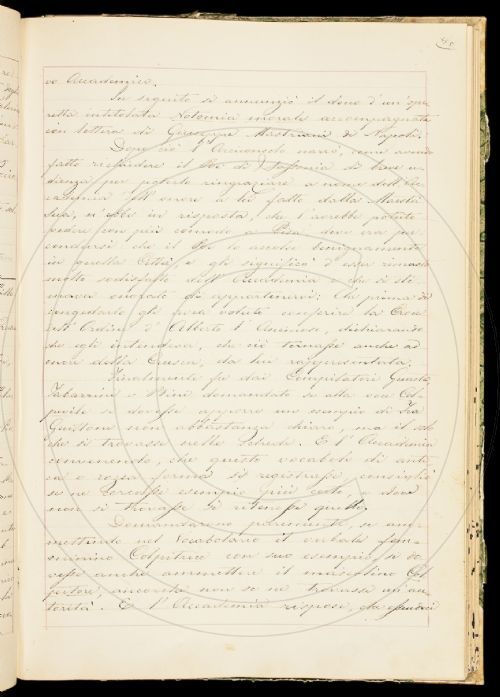 vo Accademico.
In seguito si annunziò il dono d'un'ope
retta intitolata Notomia morale accompagnata
con lettera di Giuseppe Mastriani di Napoli.
Dopo ciò l'Arciconsolo narrò, come aveva
fatto richiedere il Re di Sassonia di breve u-
dienza per poterlo ringraziare a nome dell'Ac-
cademia dell'onore a lei fatto dalla Maestà
Sua, e che in risposta, che l'avrebbe potuto
vedere con più comodo a Pisa dove era per
condursi che il Re lo accolse benignamente
in quella Città, e gli significò d'esser rimasto
molto sodisfatto dell'Accademia e che si sti-
mava onorato di appartenervi: Che prima di
congedarlo gli avea voluto conferire la Croce
dell'Ordine d'Alberto l'Animoso, dichiarando
che egli intendeva, che ciò tornasse anche ad
onore della Crusca, da lui rappresentata.
Finalmente fu dai Compilatori Guasti,
Tabarrini e Bini domandato se alla voce Col-
pevile si dovesse apporre un esempio di Fra
Guittone non abbastanza chiaro, ma il solo
che si trovasse nelle schede. E l'Accademia
convenendo, che questo vocabolo di anti-
ca e rozza forma si registrasse consigliò
se ne cercasse esempio più certo, e dove
non si trovasse si ritenesse quello.
Domandarono parimente, se am-
mettendo nel Vocabolario il verbale fem-
minino Colpitrice con suo esempio, si do-
vesse anche ammettere il mascolino Col-
pitore, ancorché non se ne trovasse un'au-
torità. E l'Accademia rispose, che